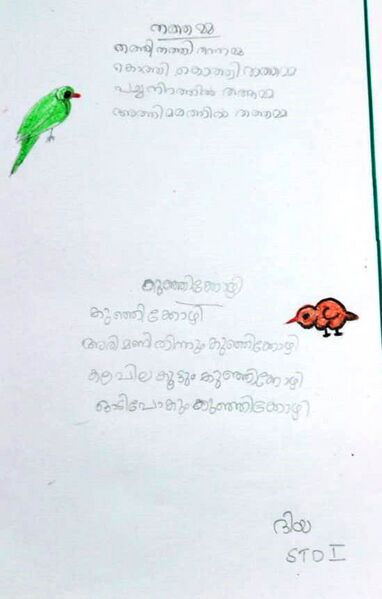 തത്തമ്മ
തത്തി തത്തി വന്നമ്മ
കൊത്തി കൊത്തി തത്തമ്മ
പച്ച നിറത്തിൽ തത്തമ്മ
അത്തിമരത്തിൽ തത്തമ്മ
കുഞ്ഞിക്കോഴി
കുഞ്ഞിക്കോഴി
അരിമണി തിന്നും കുഞ്ഞിക്കോഴി
കലപില കൂട്ടും കുഞ്ഞിക്കോഴി
ഓടിപോകും കുഞ്ഞിക്കോഴി
ദിയ
STD I